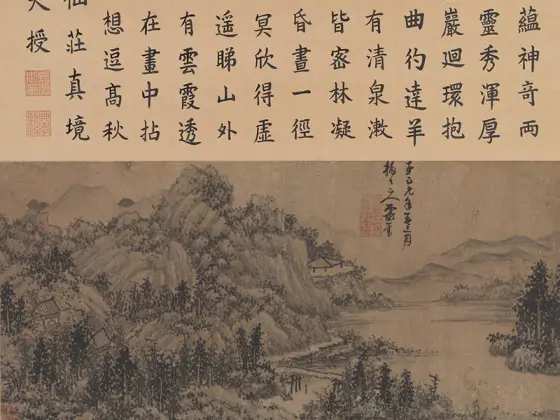 蘊神奇兩
靈秀渾厚
巖迴環抱
曲約達羊
有清泉漱
皆宻林凝
昏晝一徑
冥欣得虛
遙睇山外
有雲霞透
在畫中拈
想逗高秋
莊真境
授